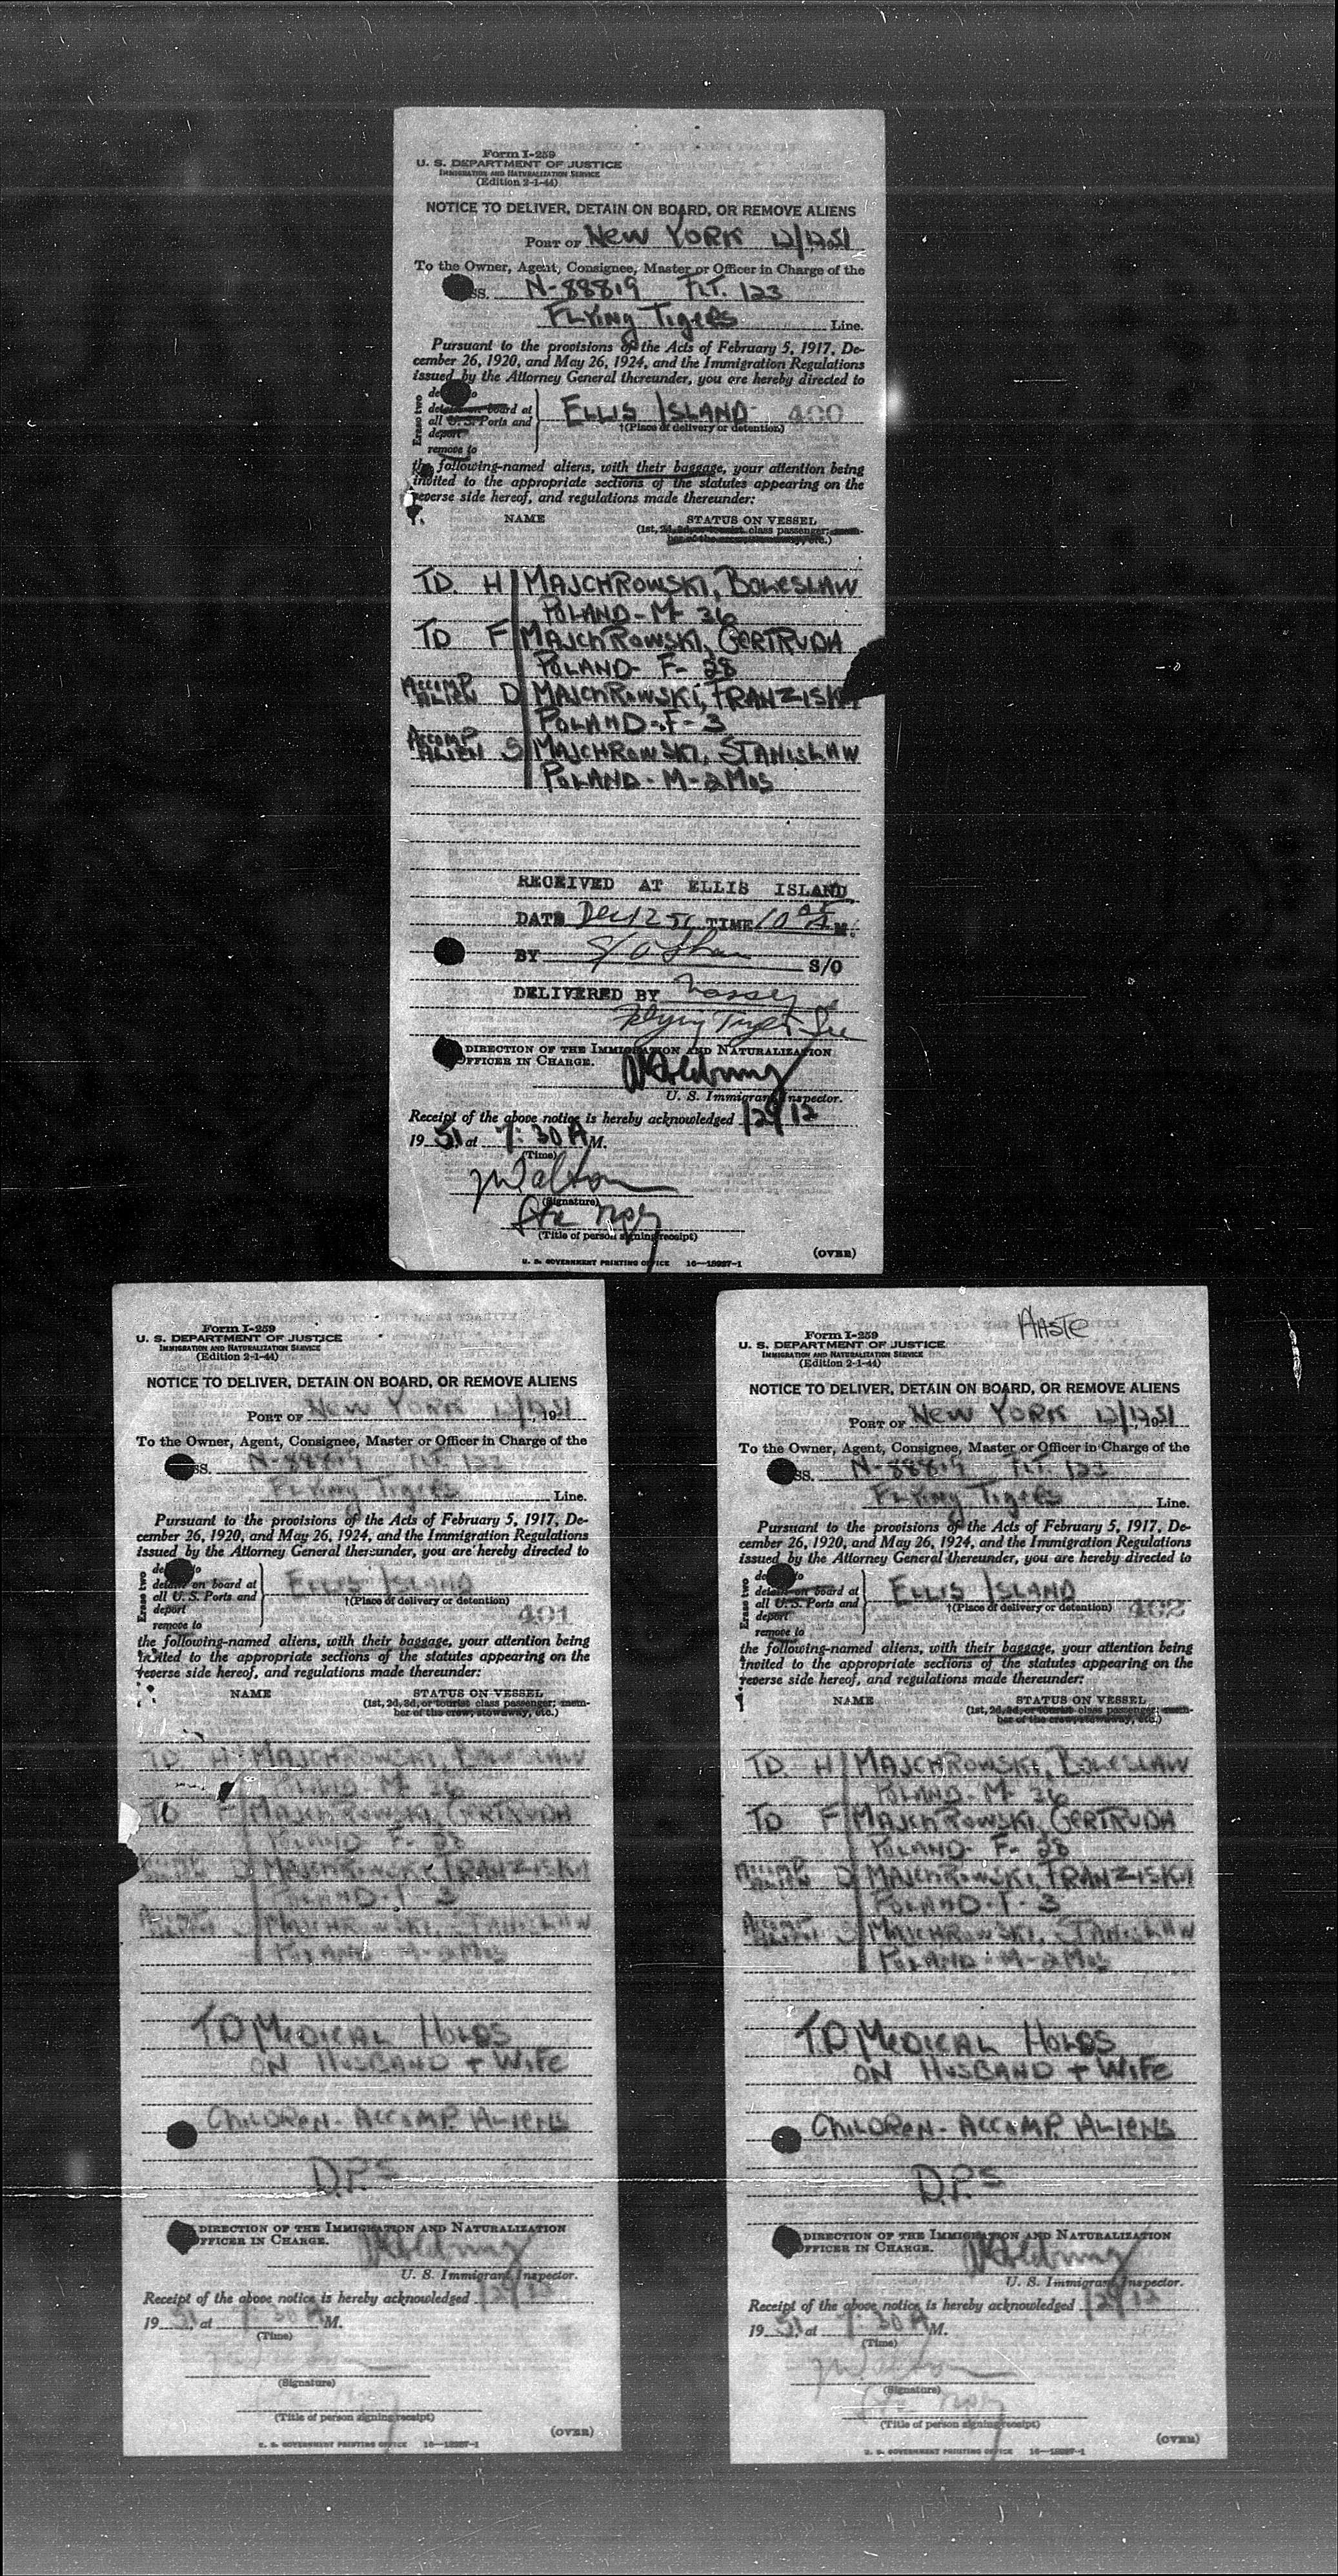 Form I-259
U. S. DEPARTMENT OF JUSTICE
IMMIGRATION AND NATURALIZATION SERVICE
(Edition 2-1-44)
NOTICE TO DELIVER, DETAIN ON BOARD, OR REMOVE ALIENS
PORT OF NEW YORK 12/12, 1951
To the Owner, Agent, Consignee, Master or Officer in Charge of the
SS. N-88819 FLT. 123
FLYING TIGERS Line.
Pursuant to the provisions of the Acts of February 5, 1917, De-
cember 26, 1920, and May 26, 1924, and the Immigration Regulations
issued by the Attorney General thereunder, you are hereby directed to
Erase two
detain on board at
all U. S. Ports and
deport
remove to
ELLIS ISLAND 400
†(Place of delivery or detention)
the following-named aliens, with their baggage, your attention being
invited to the appropriate sections of the statutes appearing on the
reverse side hereof, and regulations made thereunder:
NAME STATUS ON VESSEL
(1st, 2d, 3d, or tourist class passenger; mem-
ber of the crew, stowaway, etc.)
TD. H MAJCHROWSKI, BOLESLAW
POLAND - M- 36
TD F MAJCHROWSKI, GERTRUDA
POLAND- F- 28
ACCOMP ALIEN D MAJCHROWSKI, FRANZISKA
POLAND - F - 3
ACCOMP ALIEN S MAJCHROWSKI, STANISLAW
POLAND - M - 2 MOS
RECEIVED AT ELLIS ISLAND
DATE Dec 12 51 TIME 10 05 A M.
BY S/O S/O
DELIVERED BY
Flying Tiger
DIRECTION OF THE IMMIGRATION AND NATURALIZATION
OFFICER IN CHARGE.
U. S. Immigrant Inspector.
Receipt of the above notice is hereby acknowledged 12/12
19 51, at 7:30 A M.
(Time)
(Signature)
(Title of person signing receipt)
(OVER)
U. S. GOVERNMENT PRINTING OFFICE 16—18987-1
Form I-259
U. S. DEPARTMENT OF JUSTICE
IMMIGRATION AND NATURALIZATION SERVICE
(Edition 2-1-44)
NOTICE TO DELIVER, DETAIN ON BOARD, OR REMOVE ALIENS
PORT OF NEW YORK 12/12, 1951
To the Owner, Agent, Consignee, Master or Officer in Charge of the
SS. N-88819 FLT. 123
FLYING TIGERS Line.
Pursuant to the provisions of the Acts of February 5, 1917, De-
cember 26, 1920, and May 26, 1924, and the Immigration Regulations
issued by the Attorney General thereunder, you are hereby directed to
Erase two
detain on board at
all U. S. Ports and
deport
remove to
ELLIS ISLAND
†(Place of delivery or detention)
401
the following-named aliens, with their baggage, your attention being
invited to the appropriate sections of the statutes appearing on the
reverse side hereof, and regulations made thereunder:
NAME STATUS ON VESSEL
(1st, 2d, 3d, or tourist class passenger; mem-
ber of the crew, stowaway, etc.)
TD H MAJCHROWSKI, BOLESLAW
POLAND - M- 36
TD F MAJCHROWSKI, GERTRUDA
POLAND F- 28
D MAJCHROWSKI, FRANZISKA
POLAND - F - 3
S MAJCHROWSKI, STANISLAW
POLAND - M - 2 MOS
TD MEDICAL HOLDS
ON HUSBAND + WIFE
CHILDREN - ACCOMP. ALIENS
D.P.S
DIRECTION OF THE IMMIGRATION AND NATURALIZATION
OFFICER IN CHARGE.
U. S. Immigrant Inspector.
Receipt of the above notice is hereby acknowledged 12/12
19 51, at 7:30 A M.
(Time)
(Signature)
(Title of person signing receipt)
(OVER)
U. S. GOVERNMENT PRINTING OFFICE 16—18987-1
Form I-259
U. S. DEPARTMENT OF JUSTICE
IMMIGRATION AND NATURALIZATION SERVICE
(Edition 2-1-44)
NOTICE TO DELIVER, DETAIN ON BOARD, OR REMOVE ALIENS
PORT OF NEW YORK 12/12, 1951
To the Owner, Agent, Consignee, Master or Officer in Charge of the
SS. N-88819 FLT. 123
FLYING TIGERS Line.
Pursuant to the provisions of the Acts of February 5, 1917, De-
cember 26, 1920, and May 26, 1924, and the Immigration Regulations
issued by the Attorney General thereunder, you are hereby directed to
Erase two
detain on board at
all U. S. Ports and
deport
remove to
ELLIS ISLAND
†(Place of delivery or detention) 402
the following-named aliens, with their baggage, your attention being
invited to the appropriate sections of the statutes appearing on the
reverse side hereof, and regulations made thereunder:
NAME STATUS ON VESSEL
(1st, 2d, 3d, or tourist class passenger; mem-
ber of the crew, stowaway, etc.)
TD. H MAJCHROWSKI, BOLESLAW
POLAND - M- 36
TD F MAJCHROWSKI, GERTRUDA
POLAND- F- 28
ACCOMP ALIEN D MAJCHROWSKI, FRANZISKA
POLAND - F - 3
ACCOMP ALIEN S MAJCHROWSKI, STANISLAW
POLAND - M - 2 MOS
TD MEDICAL HOLDS
ON HUSBAND + WIFE
CHILDREN - ACCOMP. ALIENS
D.P.S
DIRECTION OF THE IMMIGRATION AND NATURALIZATION
OFFICER IN CHARGE.
U. S. Immigrant Inspector.
Receipt of the above notice is hereby acknowledged 12/12
19 51, at 7:30 A M.
(Time)
(Signature)
(Title of person signing receipt)
(OVER)
U. S. GOVERNMENT PRINTING OFFICE 16—18987-1